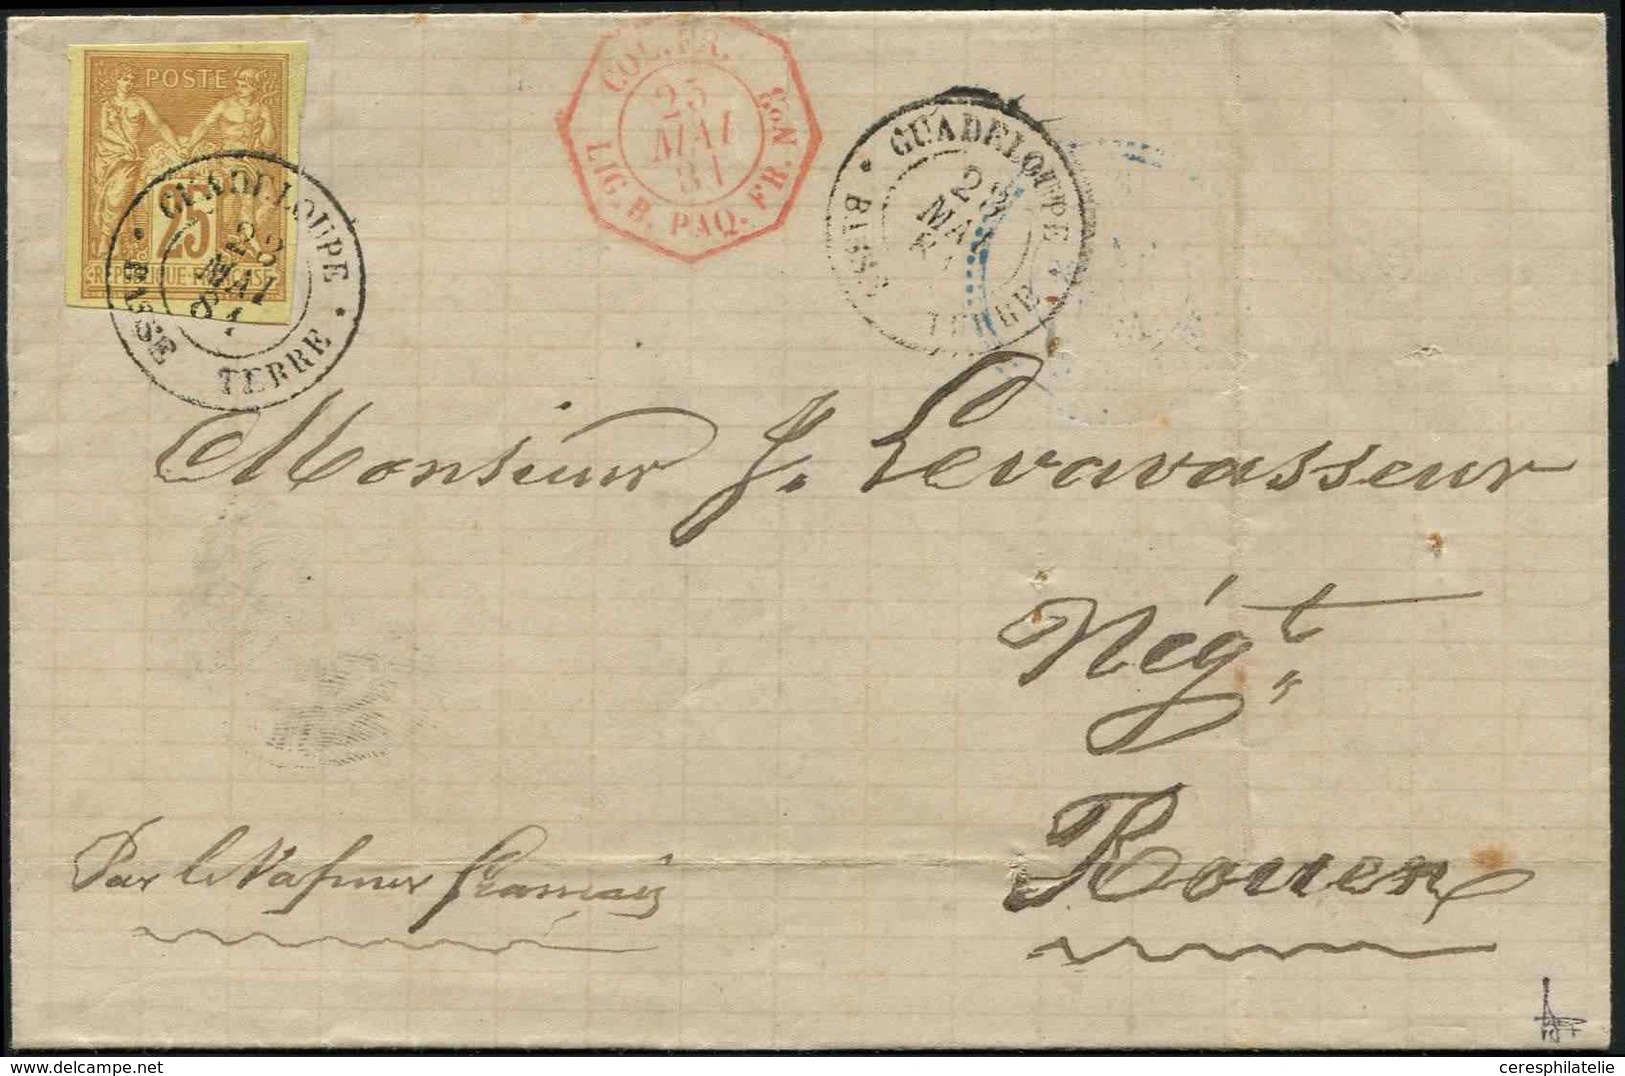 POSTE
25
RÉPUBLIQUE FRANÇAISE
GUADELOUPE
23
MAI
81
BASSE TERRE
COL. FR.
23
MAI
81
LIG. B. PAQ. FR. N°3
GUADELOUPE
23
MAI
BASSE TERRE
Monsieur J. Levavasseur
Négt
Rouen
Par le Vapeur français
ceresphilatelie